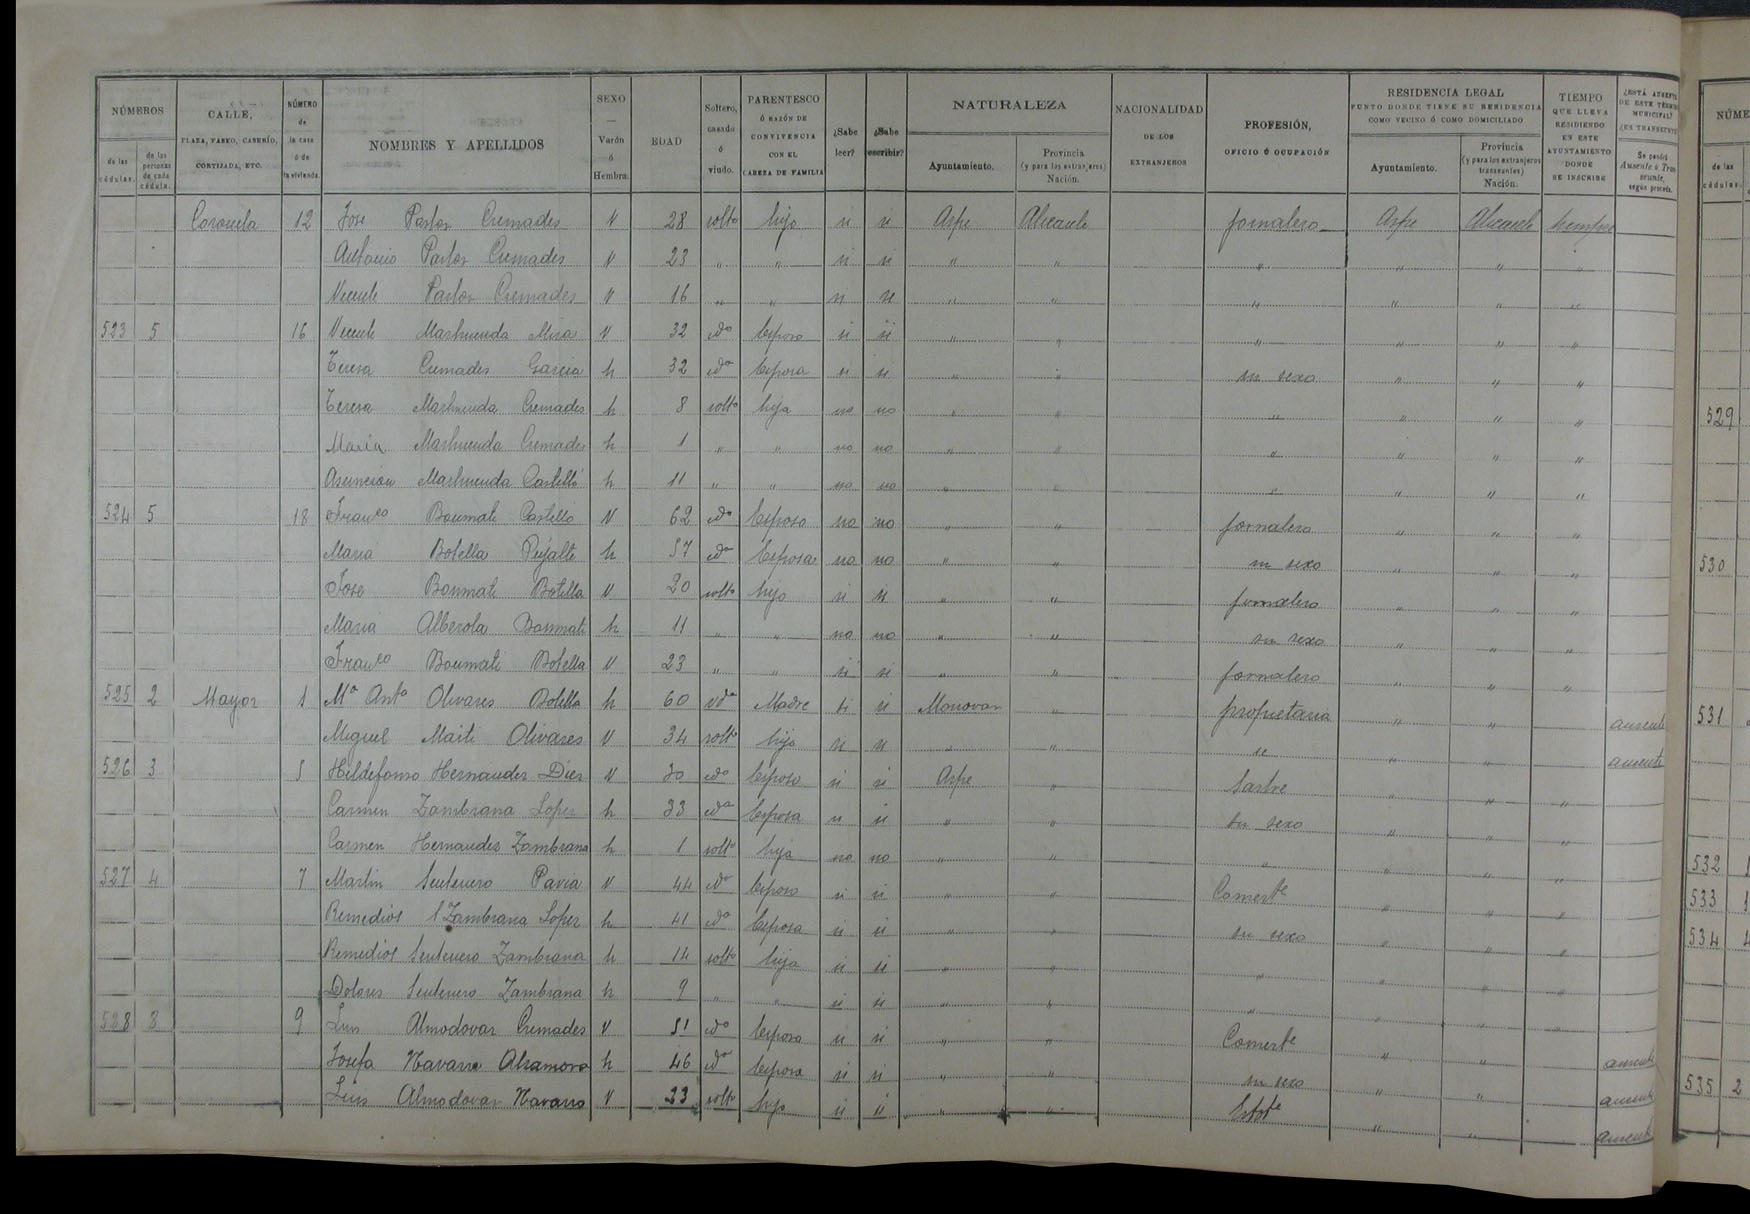 NÚMEROS
de las cédulas.
de las personas de cada cédula.
CALLE,
PLAZA, PASEO, CASERÍO,
CORTIJADA, ETC.
NÚMERO
de
la casa
ó de
la vivienda.
NOMBRES Y APELLIDOS
SEXO
—
Varón
ó
Hembra.
EDAD
Soltero,
casado
ó
viudo.
PARENTESCO
Ó RAZÓN DE
CONVIVENCIA
CON EL
CABEZA DE FAMILIA
¿Sabe
leer?
¿Sabe
escribir?
NATURALEZA
Ayuntamiento.
Provincia
(y para los extranjeros)
Nación.
NACIONALIDAD
DE LOS
EXTRANJEROS
PROFESIÓN,
OFICIO Ó OCUPACIÓN
RESIDENCIA LEGAL
PUNTO DONDE TIENE SU RESIDENCIA
COMO VECINO Ó COMO DOMICILIADO
Ayuntamiento.
Provincia
(y para los extranjeros
transeuntes)
Nación.
TIEMPO
QUE LLEVA
RESIDIENDO
EN ESTE
AYUNTAMIENTO
DONDE
SE INSCRIBE
¿ESTÁ AUSENTE
DE ESTE TÉRMINO
MUNICIPAL?
¿ES TRANSEUNTE?
Se pondrá
Ausente ó Tran-
seunte,
según proceda.
12 Jose Pastor Cremades V 28 solto hijo si si Aspe Alicante jornalero Aspe Alicante siempre
Antonio Pastor Cremades V 23 " " si si " " " " " "
Vicente Pastor Cremades V 16 " " si si " " " " " "
523 5 16 Vicente Marhuenda Mira V 32 cdo Esposo si si " " " " " "
Teresa Cremades Garcia h 32 cda Esposa si si " " su sexo " " "
Teresa Marhuenda Cremades h 8 solto hija no no " " " " " "
Maria Marhuenda Cremades h 1 " " no no " " " " " "
Asuncion Marhuenda Castelló h 11 " " no no " " " " " "
524 5 18 Franco Bonmati Castello V 62 cdo Esposo no no " " jornalero " " "
Maria Botella Pujalte h 57 cda Esposa no no " " su sexo " " "
Jose Bonmati Botella V 20 solto hijo si si " " jornalero " " "
Maria Alberola Bonmati h 11 " " no no " " su sexo " " "
Franco Bonmati Botella V 23 " " si si " " jornalero " " "
525 2 Mayor 1 Ma Anta Olivares Botella h 60 vda Madre si si Monovar " propietaria " " ausente
Miguel Olivares V 34 solto hijo si si " " " " ausente
526 3 5 Hildefonso Hernandez Dies V 30 cdo Esposo si si Aspe " Sastre " " "
Carmen Zambrana Lopez h 33 cda Esposa si si " " su sexo " " "
Carmen Hernandez Zambrana h 1 solta hija no no " " " " " "
527 4 7 Martin Sentenero Pavia V 44 cdo Esposo si si " " Comerte " " "
Remedios Zambrana Lopez h 41 cda Esposa si si " " su sexo " " "
Remedios Sentenero Zambrana h 14 solto hija si si " " " " " "
Dolores Sentenero Zambrana h 9 " " si si " " " " " "
528 3 9 Luis Almodovar Cremades V 51 cdo Esposo si si " " Comerte " " ausente
Josefa Navarro Altamora h 46 cda Esposa si si " " su sexo " " ausente
Luis Almodovar Navarro V 23 solto hijo si si " " Estte " " ausente
NÚME
de las
cédulas.
529
530
531
532 1
533 1
534
535 2